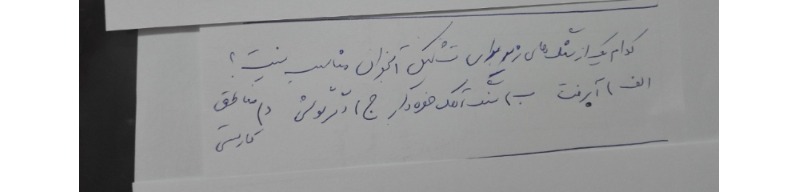 کدام یک از سنگ های زیر برای تشکیل آبخوان مناسب نیست؟
الف) آبرفت ب) سنگ آهک حفره دار ج) آذر پوش د) مناطق
کارستی